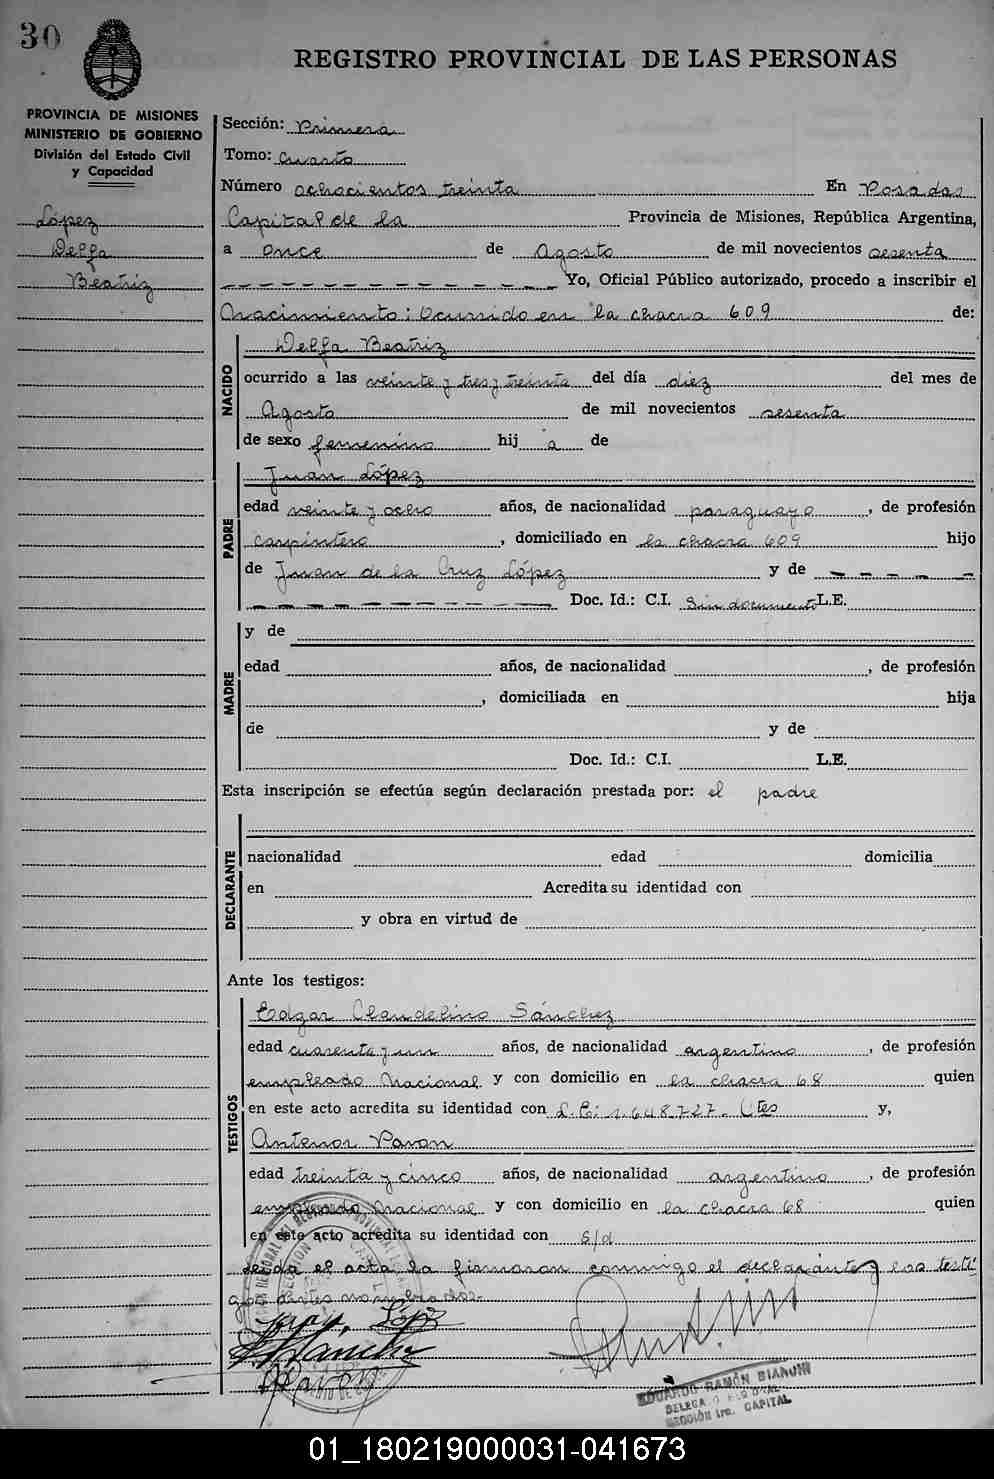 30
REGISTRO PROVINCIAL DE LAS PERSONAS
PROVINCIA DE MISIONES
MINISTERIO DE GOBIERNO
División del Estado Civil
y Capacidad
López
Delfa
Beatriz
Sección: Primera
Tomo: Cuarto
Número ochocientos treinta En Posadas
Capital de la Provincia de Misiones, República Argentina,
a once de Agosto de mil novecientos sesenta
Yo, Oficial Público autorizado, procedo a inscribir el
Nacimiento: Ocurrido en la chacra 609 de:
NACIDO
Delfa Beatriz
ocurrido a las veinte y tres y treinta del día diez del mes de
Agosto de mil novecientos sesenta
de sexo femenino hij a de
PADRE
Juan López
edad veinte y ocho años, de nacionalidad paraguayo, de profesión
carpintero, domiciliado en la chacra 609 hijo
de Juan de la Cruz López y de
Doc. Id.: C.I. Sin documento L.E.
MADRE
y de
edad años, de nacionalidad, de profesión
, domiciliada en hija
de y de
Doc. Id.: C.I. L.E.
Esta inscripción se efectúa según declaración prestada por: el padre
DECLARANTE
nacionalidad edad domicilia
en Acredita su identidad con
y obra en virtud de
Ante los testigos:
TESTIGOS
Edgar Claudelino Sánchez
edad cuarenta y un años, de nacionalidad argentino, de profesión
empleado Nacional y con domicilio en la chacra 68 quien
en este acto acredita su identidad con L.E: 1.648.727. Ctes y,
Antenor Pavon
edad treinta y cinco años, de nacionalidad argentino, de profesión
empleado Nacional y con domicilio en la chacra 68 quien
en este acto acredita su identidad con s/d
leida el acta la firmaron conmigo el declarante y los testi
gos antes nombrados.
López
Sanchez
Pavon
EDUARDO RAMÓN BIANCHI
SECCIÓN 1ra. CAPITAL
01_180219000031-041673